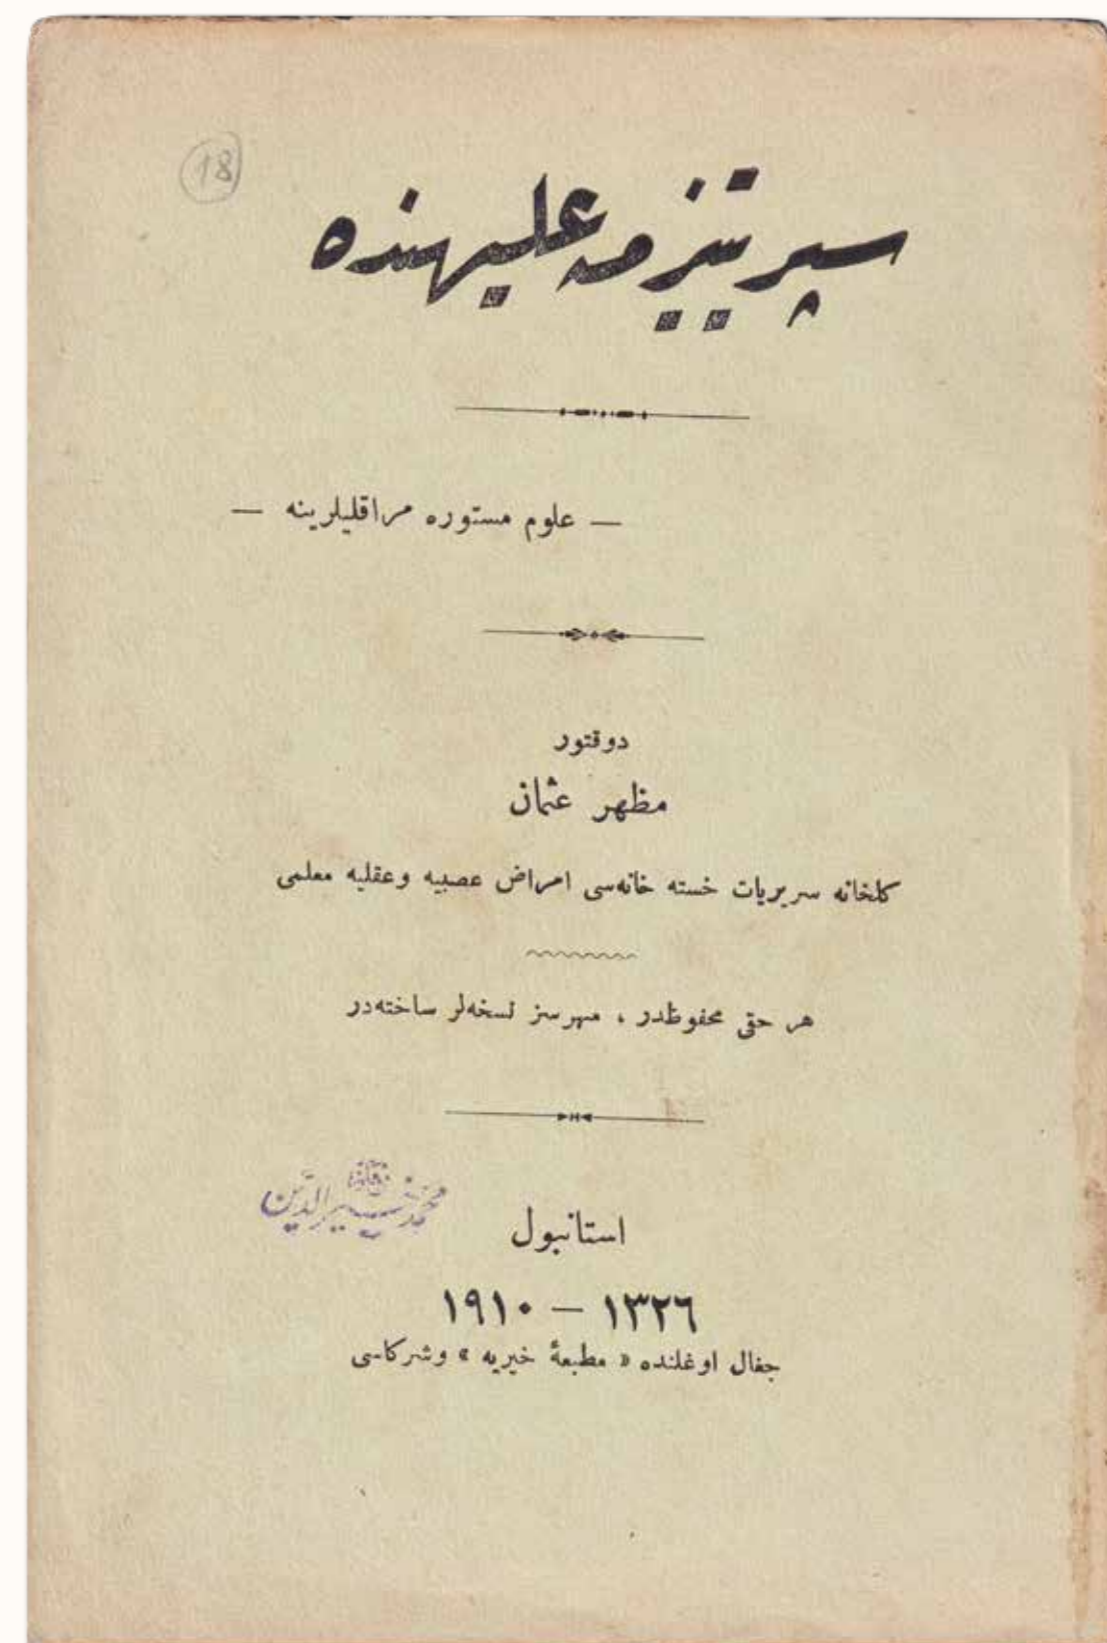 18
سپریتیزمه علیهنده
— علوم مستوره مراقلیلرینه —
دوقتور
مظهر عثمان
کلخانه سریریات خسته خانه‌سی امراض عصبیه وعقلیه معلمی
هر حقی محفوظدر ، مهرسز نسخه‌لر ساخته‌در
محمد خیرالدین
استانبول
١٣٢٦ — ١٩١٠
جغال اوغلنده « مطبعهٔ خیریه » وشرکاسی